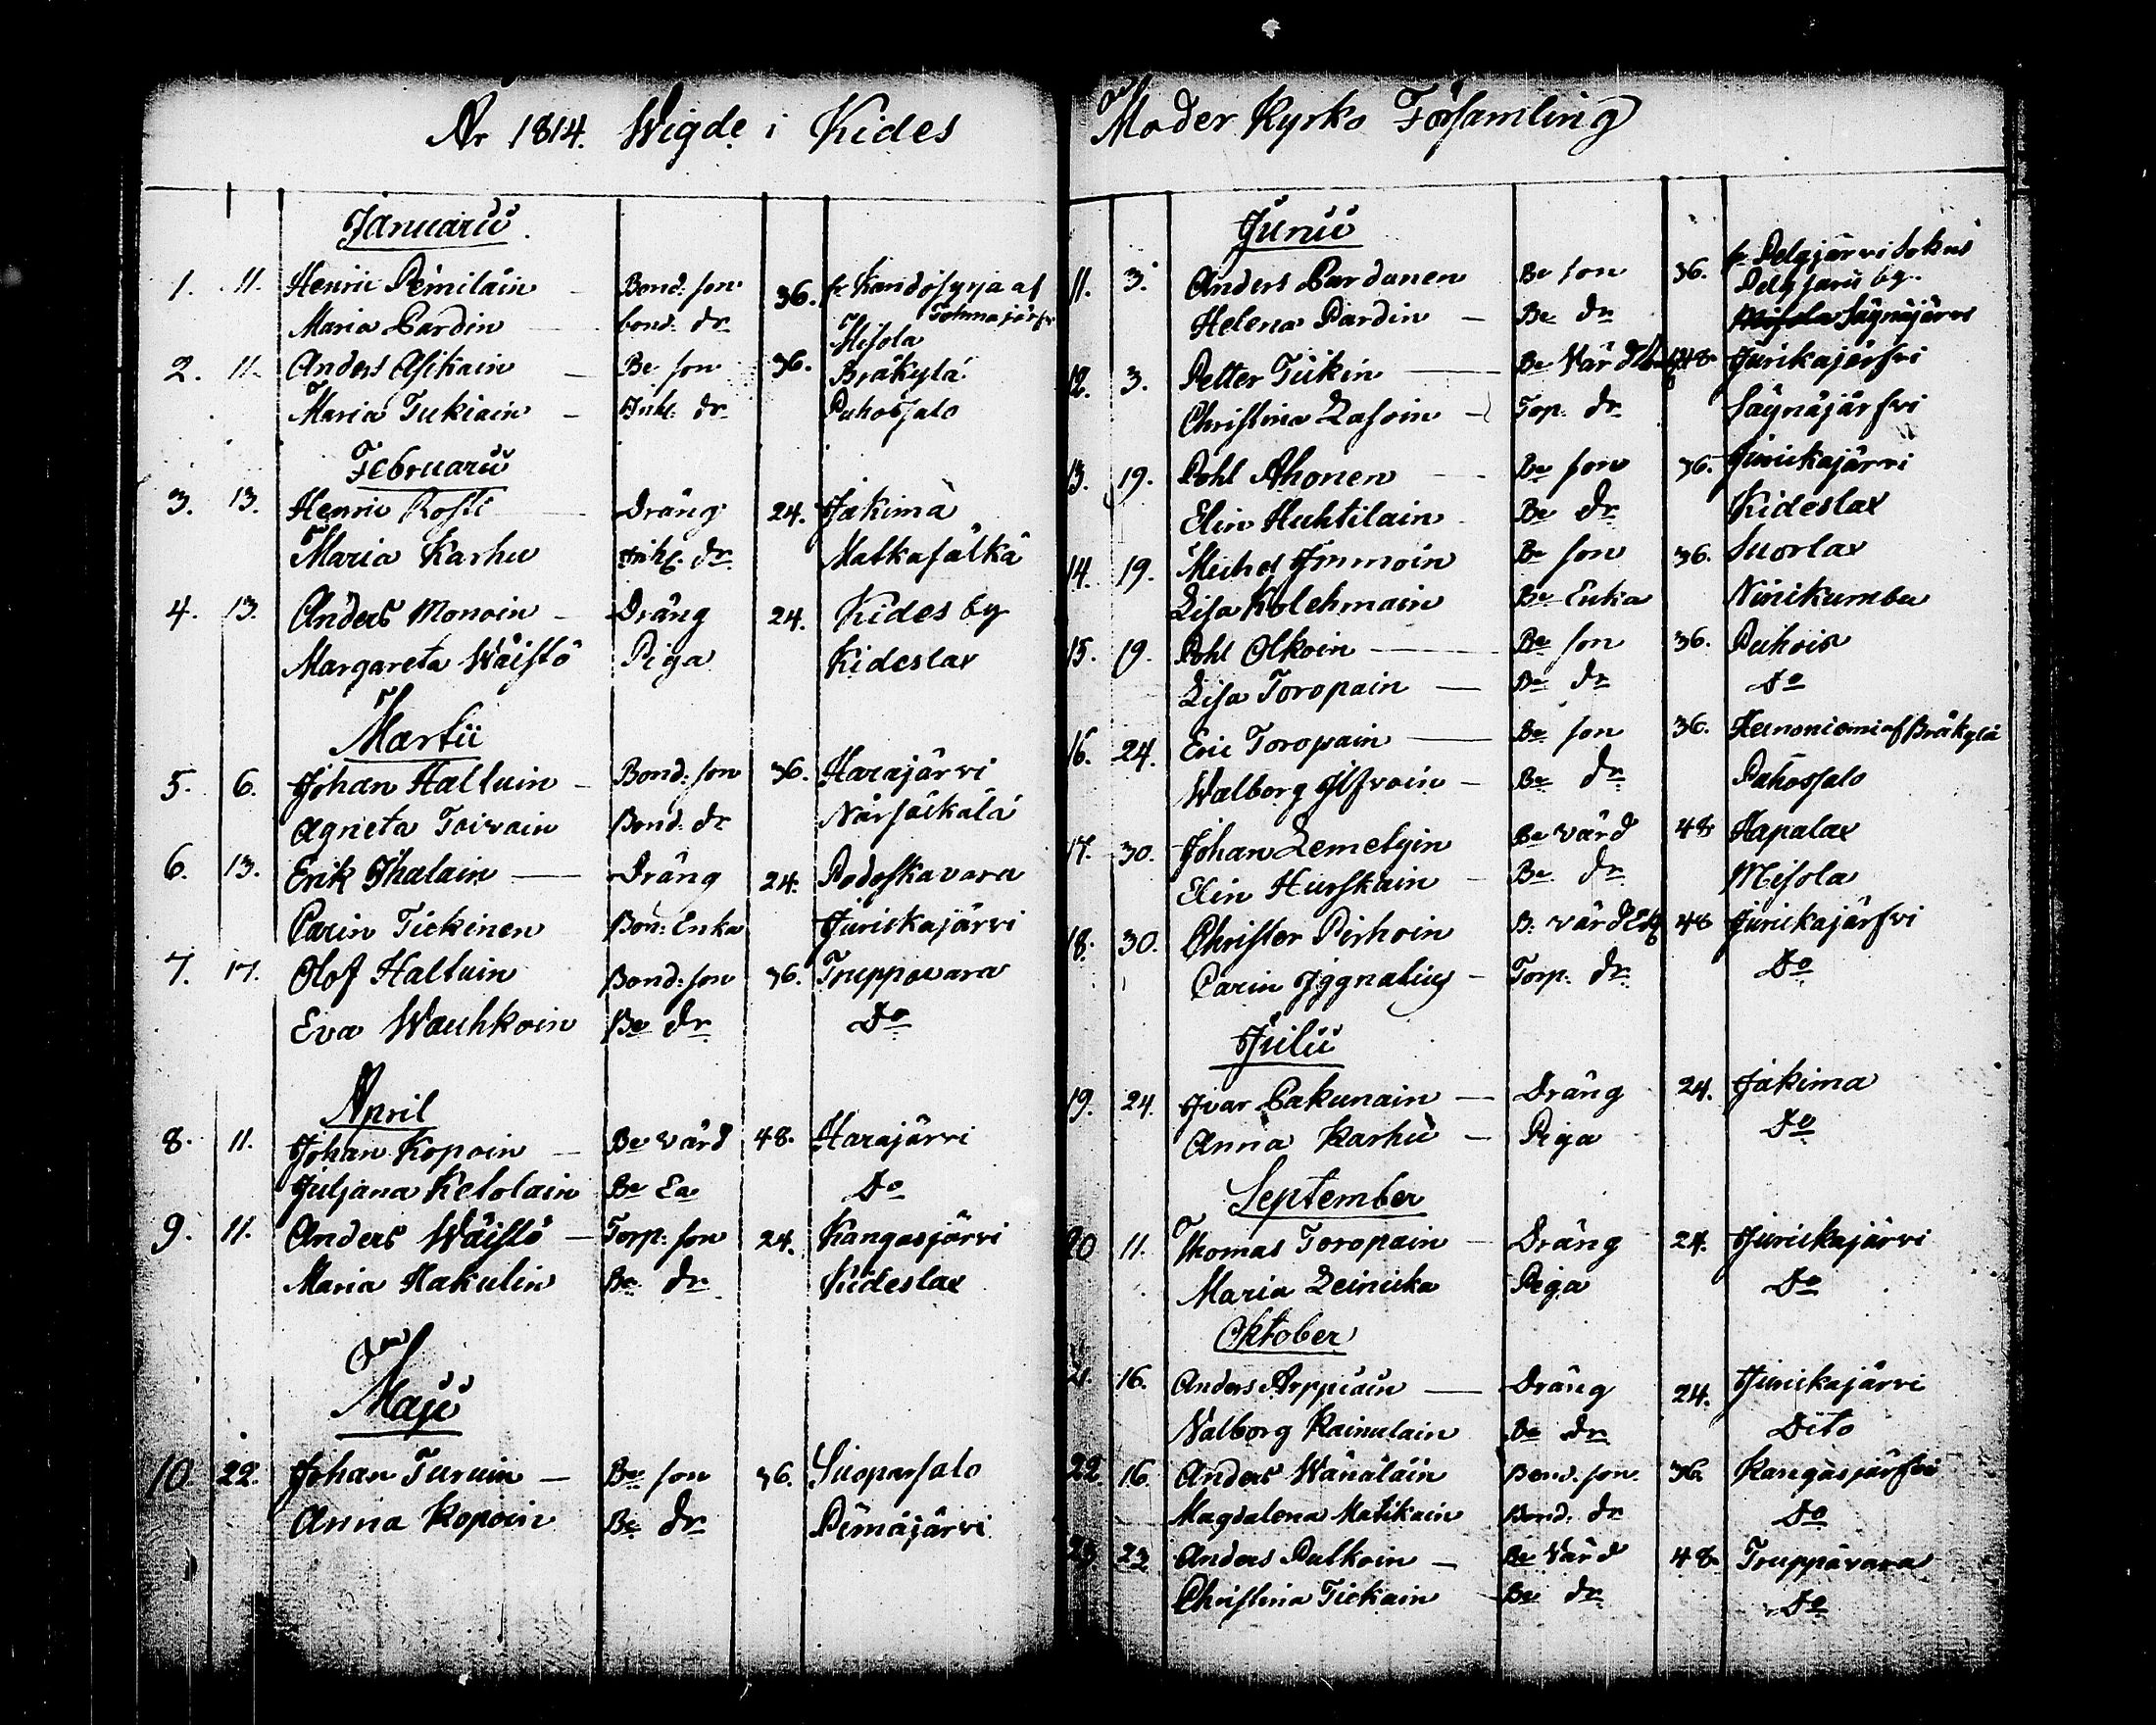 År 1814. Wigde i Kides
Januarii
1. 11. Henric Pemiläin Bond: son 36. fr Kandosyrja af Tohmajärfvi
Maria Pardin bond: dr Misola
2. 11. Anders Asikain Be son 36. Bräkylä
Maria Tukiain Inh: dr Puhossalo
Februarii
3. 13. Henric Rosti Dräng 24. Jakima
Maria Karhu Inh: dr Matkasälkä
4. 13. Anders Monoin Dräng 24. Kides by
Margareta Wäistö Piga Kideslax
Martii
5. 6. Johan Haltuin Bond: son 36. Harajärvi
Agneta Toivain Bond: dr Närsäkälä
6. 13. Erik Ihalain Dräng 24. Podoskavara
Carin Tickinen Bon: Enka Jurickajärvi
7. 17. Olof Haltuin Bond: son 36. Truppovara
Eva Wauhkoin Be dr Do
April
8. 11. Johan Kopoin Be värd 48. Harajärvi
Juljana Ketolain Be Ea Do
9. 11. Anders Wäistö Torp: son 24. Kangasjärvi
Maria Hakulin Be dr Kideslax
Maji
10. 22. Johan Turuin Be son 36. Suoparsalo
Anna Kopoin Be dr Pämäjärvi
Moder Kyrko Församling
Junii
11. 3. Anders Pardanen Be son 36. fr Pelgjärvi Sokn Pelgjärvi by.
Helena Pardin Be dr Misola Säynäjärvi
12. 3. Petter Tiikin Be Värd 48. Jurikajärfvi
Christina Lasoin Top: dr Säynäjärfvi
13. 19. Pohl Ahonen Be son 36. Jurickajärvi
Elin Huhtilain Be dr Kideslax
14. 19. Michel Immoin Be son 36. Suorlax
Lisa Kolehmain Be Enka Niinikumbu
15. 19. Pohl Olkoin Be son 36. Puhois
Lisa Toropain Be dr Do
16. 24. Eric Toropain Be son 36. Heinoniemi af Bräkylä
Walborg Ilfvoin Be dr Puhossalo
17. 30. Johan Lemetyin Be värd 48 Hapalax
Elin Hurskain Be dr Misola
18. 30. Christer Pirhoin B. värd 48 Jurickajärfvi
Carin Iggnatius Torp: dr Do
Julii
19. 24. Ivar Pakunain Dräng 24. Jakima
Anna Karhu Piga Do
September
20 11. Thomas Toropain Dräng 24. Jurickajärvi
Maria Leinicka Piga Do
Oktober
21. 16. Anders Arppiain Dräng 24. Jurickajärvi
Valborg Kainulain Be dr Dito
22 16. Anders Wänäläin Bond. son. 36. Kangasjärfvi
Magdalena Matikain Bond: dr Do
23 23 Anders Pulkoin Be Värd 48. Truppåvara
Christina Tickain Be dr Do